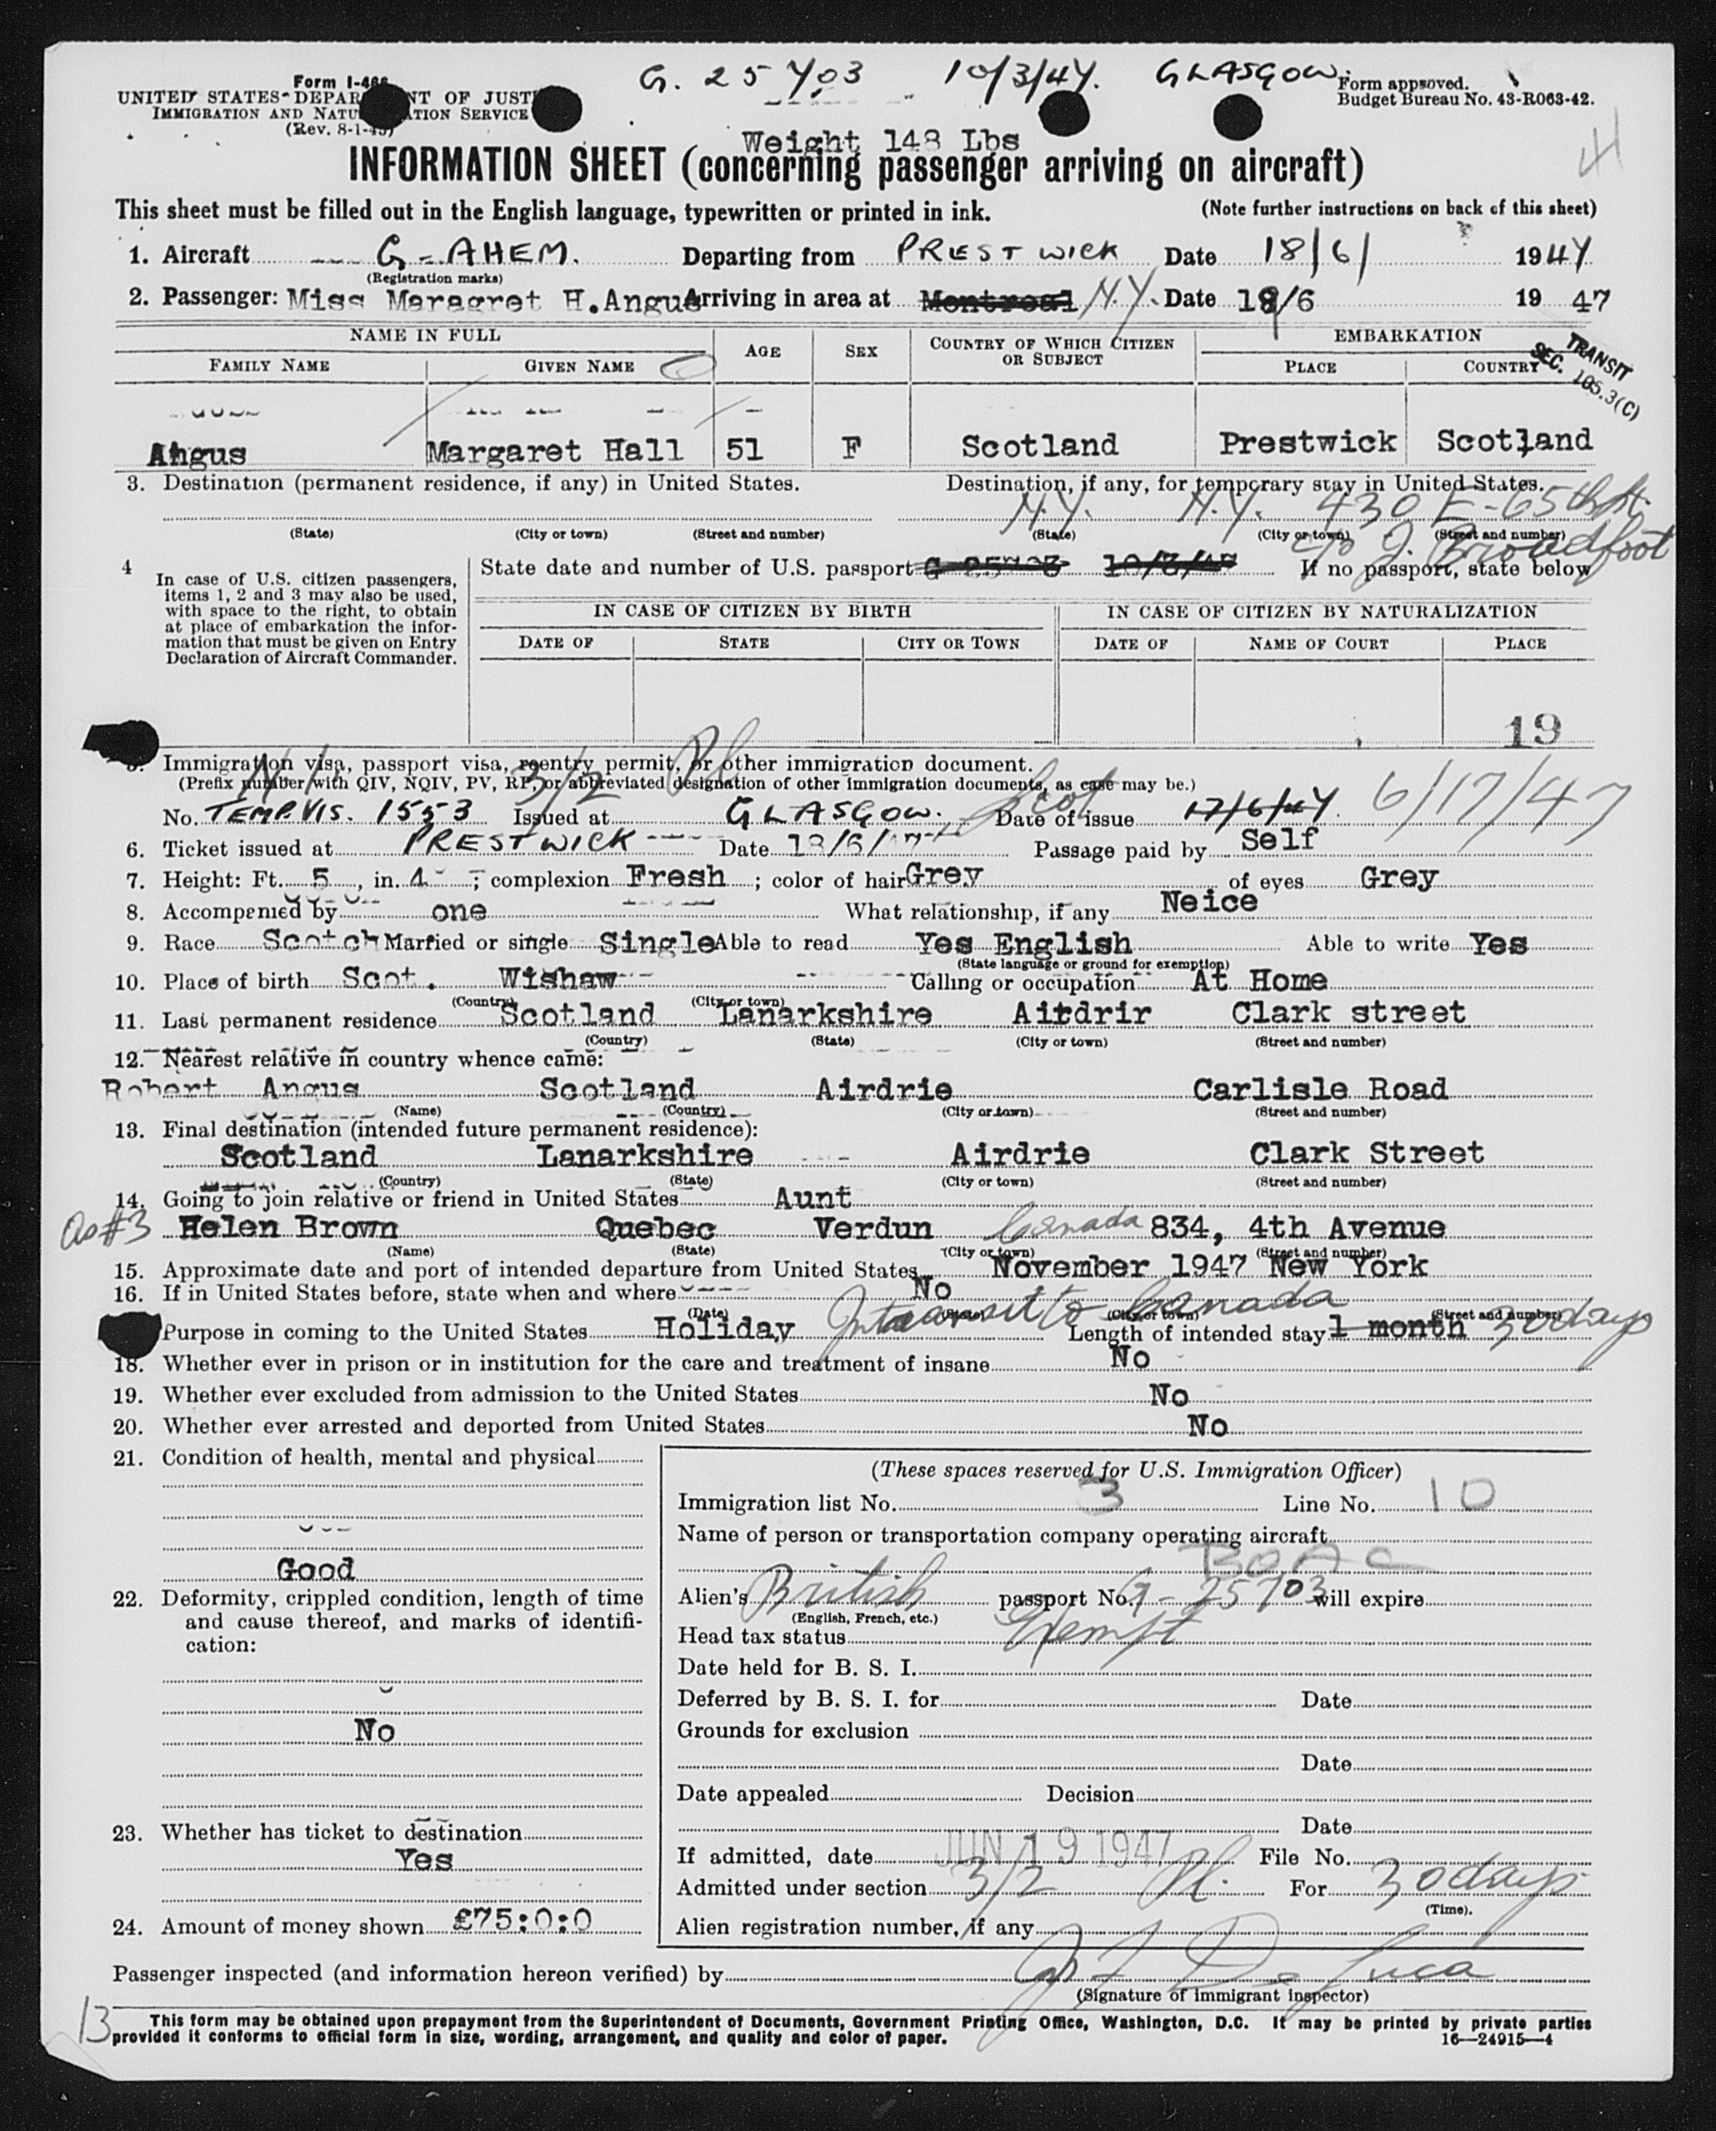 G. 25703 10/3/47. GLASGOW.
Form I-466
UNITED STATES DEPARTMENT OF JUSTICE
IMMIGRATION AND NATURALIZATION SERVICE
(Rev. 8-1-45)
Form approved.
Budget Bureau No. 43-R063-42.
Weight 148 Lbs
INFORMATION SHEET (concerning passenger arriving on aircraft)
This sheet must be filled out in the English language, typewritten or printed in ink. (Note further instructions on back of this sheet)
1. Aircraft G-AHEM. Departing from PRESTWICK Date 18/6/ 1947
(Registration marks)
2. Passenger: Miss Maragret H.Angus Arriving in area at Montreal N.Y. Date 19/6 19 47
NAME IN FULL AGE SEX COUNTRY OF WHICH CITIZEN OR SUBJECT EMBARKATION
FAMILY NAME GIVEN NAME PLACE COUNTRY
TRANSIT
SEC. 105.3(C)
Angus Margaret Hall 51 F Scotland Prestwick Scotland
3. Destination (permanent residence, if any) in United States. Destination, if any, for temporary stay in United States.
N.Y. N.Y. 430 E-65th St.
(State) (City or town) (Street and number) (State) (City or town) (Street and number)
c/o J. Broadfoot
4 In case of U.S. citizen passengers, items 1, 2 and 3 may also be used, with space to the right, to obtain at place of embarkation the information that must be given on Entry Declaration of Aircraft Commander.
State date and number of U.S. passport G 25703 10/3/47 If no passport, state below
IN CASE OF CITIZEN BY BIRTH IN CASE OF CITIZEN BY NATURALIZATION
DATE OF STATE CITY OR TOWN DATE OF NAME OF COURT PLACE
19
5. Immigration visa, passport visa, reentry permit, or other immigration document.
(Prefix number with QIV, NQIV, PV, RP, or abbreviated designation of other immigration documents, as case may be.)
3/2 Pl Scot
No. TEMP.VIS. 1553 Issued at GLASGOW. Date of issue 17/6/47. 6/17/47
6. Ticket issued at PRESTWICK Date 18/6/47 Passage paid by Self
7. Height: Ft. 5, in. 4; complexion Fresh; color of hair Grey of eyes Grey
8. Accompanied by one What relationship, if any Neice
9. Race Scotch Married or single Single Able to read Yes English Able to write Yes
(State language or ground for exemption)
10. Place of birth Scot. Wishaw Calling or occupation At Home
(Country) (City or town)
11. Last permanent residence Scotland Lanarkshire Aitdrir Clark street
(Country) (State) (City or town) (Street and number)
12. Nearest relative in country whence came:
Robert Angus Scotland Airdrie Carlisle Road
(Name) (Country) (City or town) (Street and number)
13. Final destination (intended future permanent residence):
Scotland Lanarkshire Airdrie Clark Street
(Country) (State) (City or town) (Street and number)
14. Going to join relative or friend in United States Aunt
as #3 Helen Brown Quebec Verdun Canada 834, 4th Avenue
(Name) (State) (City or town) (Street and number)
15. Approximate date and port of intended departure from United States November 1947 New York
16. If in United States before, state when and where No
(Date) (State) (City or town) (Street and number)
Purpose in coming to the United States Holiday In transit to Canada Length of intended stay 1 month 30 days
18. Whether ever in prison or in institution for the care and treatment of insane No
19. Whether ever excluded from admission to the United States No
20. Whether ever arrested and deported from United States No
21. Condition of health, mental and physical
Good
22. Deformity, crippled condition, length of time and cause thereof, and marks of identification:
No
23. Whether has ticket to destination
Yes
24. Amount of money shown £75:0:0
(These spaces reserved for U.S. Immigration Officer)
Immigration list No. 3 Line No. 10
Name of person or transportation company operating aircraft
BOAC
Alien's British passport No. G-25703 will expire
(English, French, etc.)
Head tax status Exempt
Date held for B. S. I.
Deferred by B. S. I. for Date
Grounds for exclusion
Date
Date appealed Decision
Date
If admitted, date JUN 19 1947 File No.
Admitted under section 3/2 Pl. For 30 days
(Time).
Alien registration number, if any
Passenger inspected (and information hereon verified) by De Luca
(Signature of Immigrant Inspector)
13
This form may be obtained upon prepayment from the Superintendent of Documents, Government Printing Office, Washington, D.C. It may be printed by private parties
provided it conforms to official form in size, wording, arrangement, and quality and color of paper. 16—24915—4